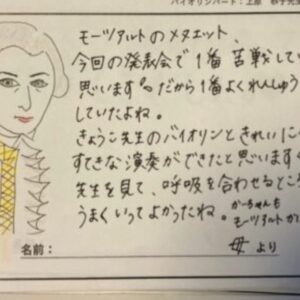 バイオリンパート:上原 恭子先生
モーツアルトのメヌエット、
今回の発表会で1番苦戦して
思います。だから1番よくれんしゅう
していたよね。
きょうこ先生のバイオリンときれいに
すてきな演奏ができたと思います
先生を見て、呼吸を合わせるところ
うまくいってよかったね。
かーちゃんも
モーツアルト
名前:
母より